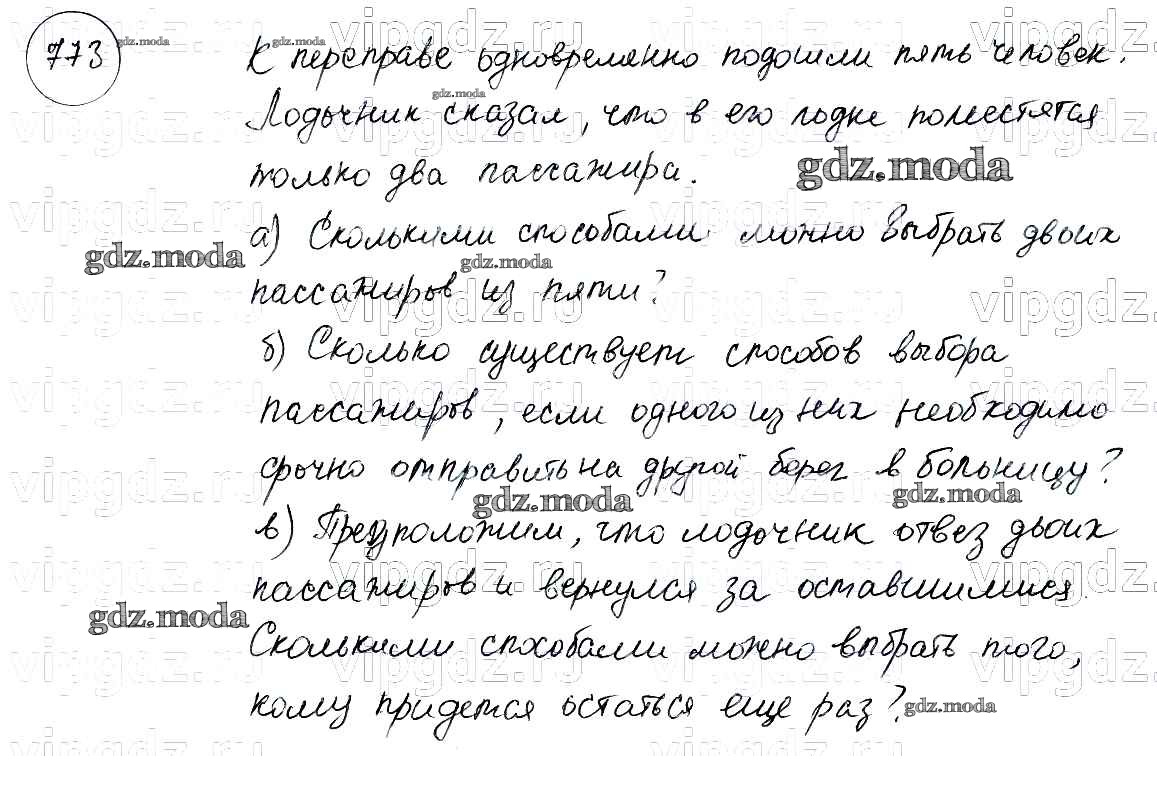 773
К переправе одновременно подошли пять человек.
Лодочник сказал, что в его лодке поместятся
только два пассажира.
а) Сколькими способами можно выбрать двоих
пассажиров из пяти?
б) Сколько существует способов выбора
пассажиров, если одного из них необходимо
срочно отправить на другой берег в больницу?
в) Предположим, что лодочник отвез двоих
пассажиров и вернулся за оставшимися.
Сколькими способами можно выбрать того,
кому придется остаться еще раз?
gdz.moda
gdz.moda
gdz.moda
gdz.moda
gdz.moda
gdz.moda
gdz.moda
gdz.moda
gdz.moda
gdz.moda
vipgdz.ru